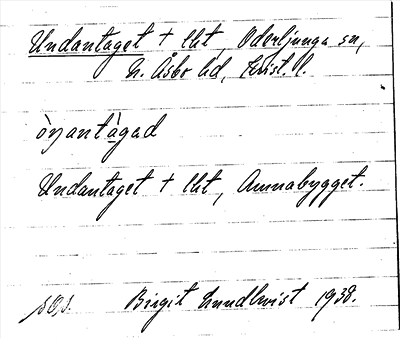 Undantaget + lht, Oderljunga sn,
N. Åsbo hd, Krist. l.
òŋantàgad
Undantaget + lht, Annabygget.
s.O.s. Birgit Lundqvist 1938.